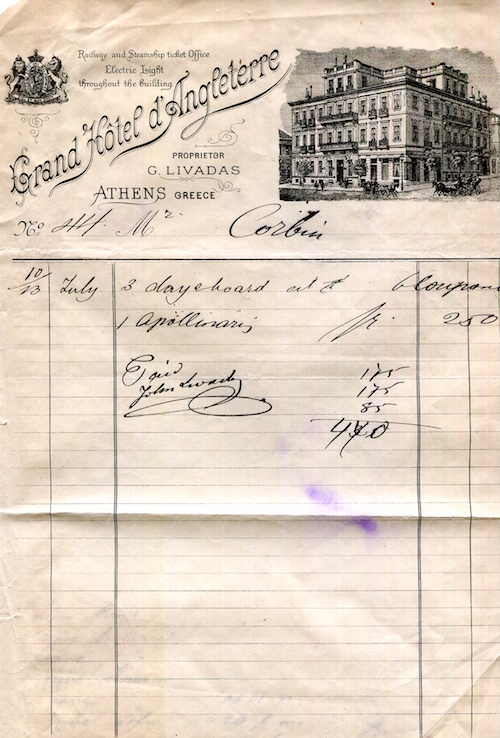 Railway and Steamship ticket Office
Electric Light
throughout the building
Grand Hôtel d'Angleterre
PROPRIETOR
G. LIVADAS
ATHENS GREECE
No 44. Mr Corbin
10/13 July 3 days board at 6 Coupons
1 Apollinaris fr. 2 50
Paid 175
John Livady 175
85
440